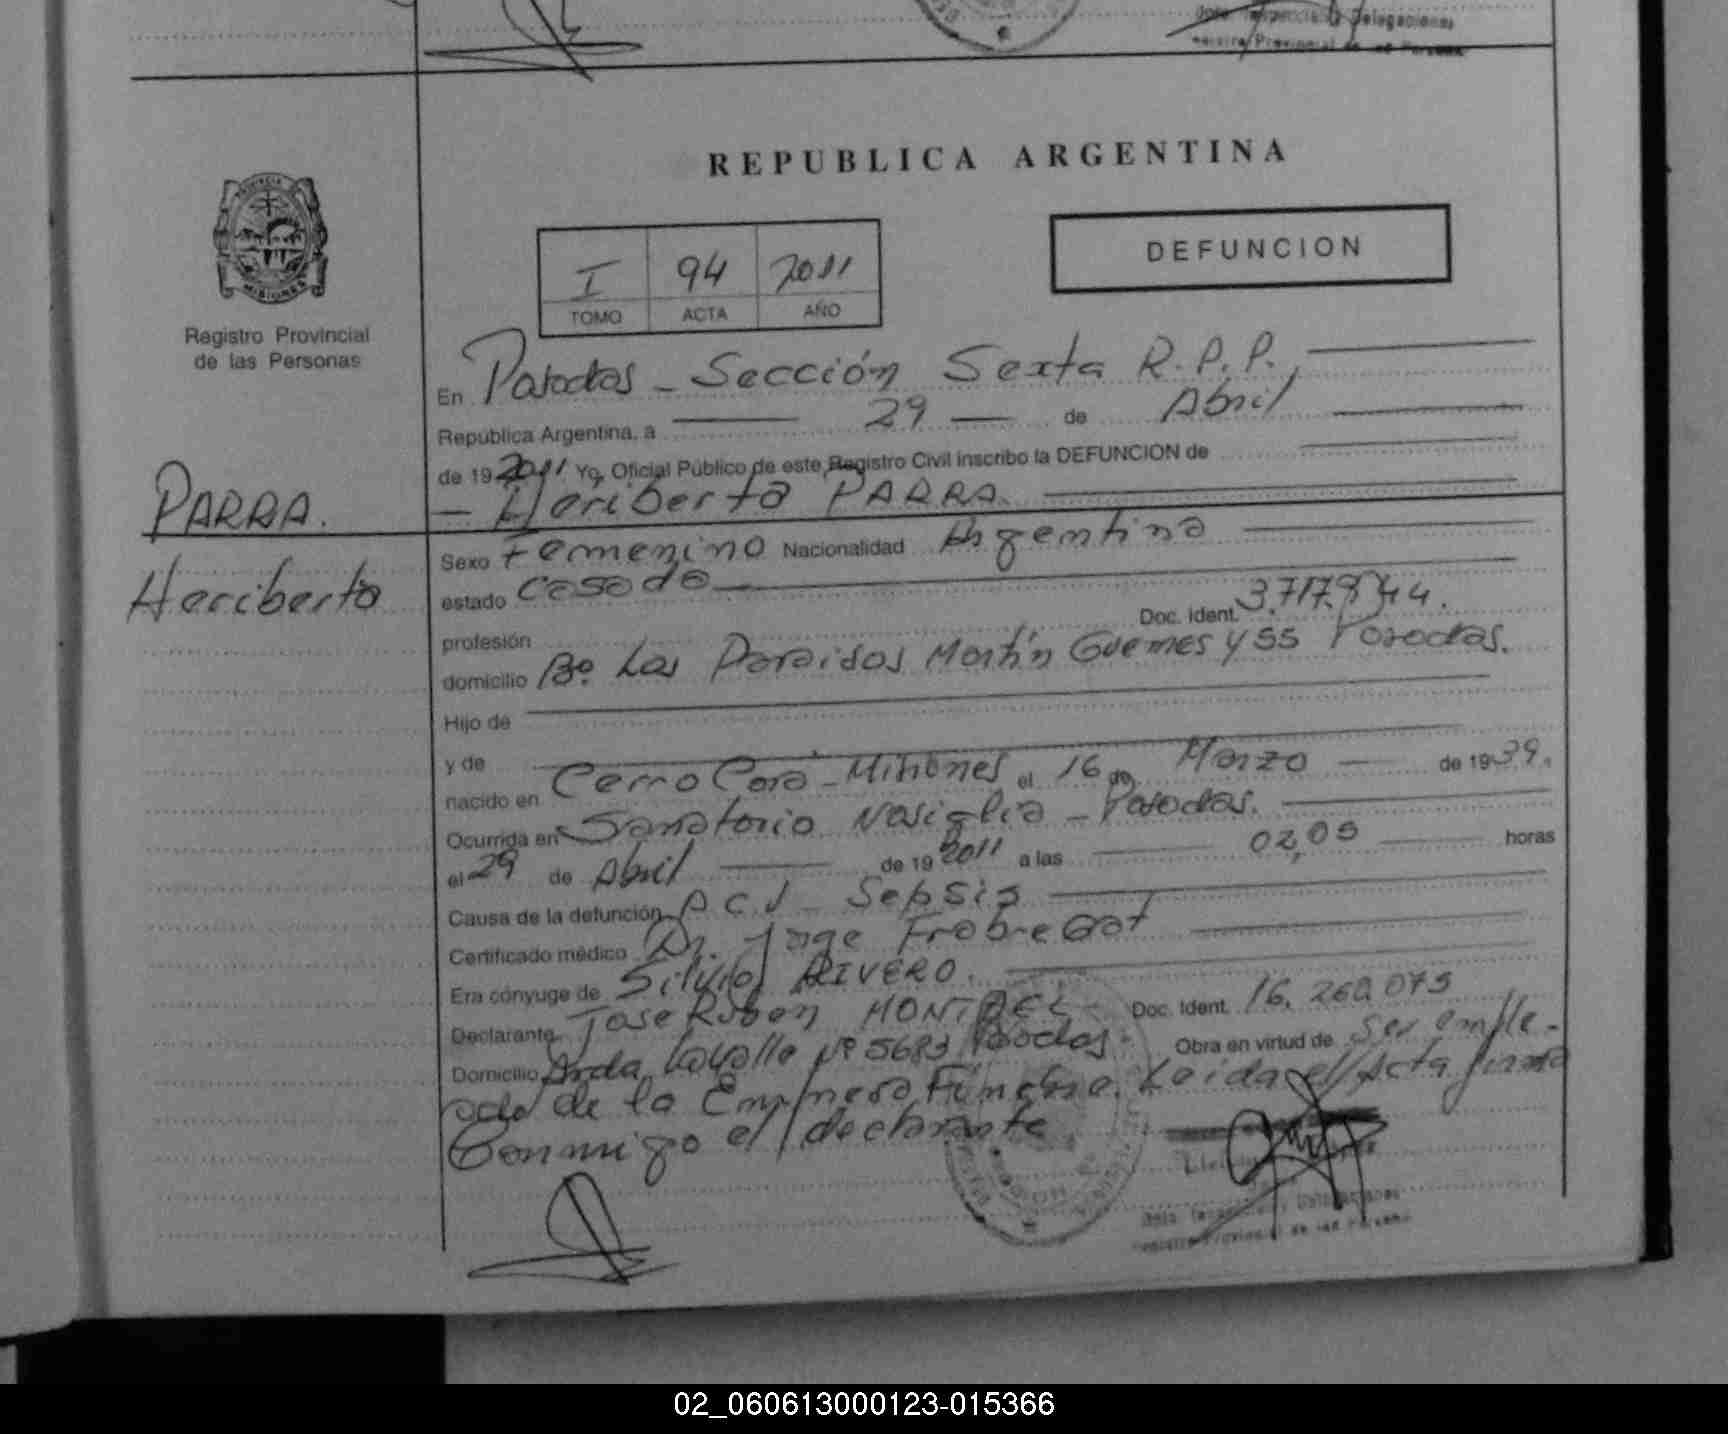 Delegaciones
REPUBLICA ARGENTINA
PROVINCIA DE
MISIONES
Registro Provincial
de las Personas
I 94 2011
TOMO ACTA AÑO
DEFUNCION
En Posadas - Sección Sexta R.P.P.
República Argentina, a 29 de Abril
de 19 2011 Yo, Oficial Público de este Registro Civil inscribo la DEFUNCION de
- Heriberta PARRA.
PARRA.
Heriberta
Sexo Femenino Nacionalidad Argentina
estado Casada
profesión Doc. Ident.
domicilio Bº Los Paraisos Martín Guemes y SS Posadas.
Hijo de
y de
nacido en Cerro Corá - Misiones el 16 de Marzo de 1939.
Ocurrida en Sanatorio Nosiglia - Posadas.
el 29 de Abril de 19 2011 a las 02,05 horas
Causa de la defunción Sepsis
Certificado médico Dr. Jorge
Era cónyuge de RIVERO.
Declarante Jose Ruben MONTIEL Doc. Ident. 16.260.075
Domicilio Avda. Lavalle Nº 5683 Posadas. Obra en virtud de ser emple-
ado de la Empresa Fúnebre. Leida el Acta firma
Conmigo el declarante
Registro Provincial de las Personas
02_060613000123-015366